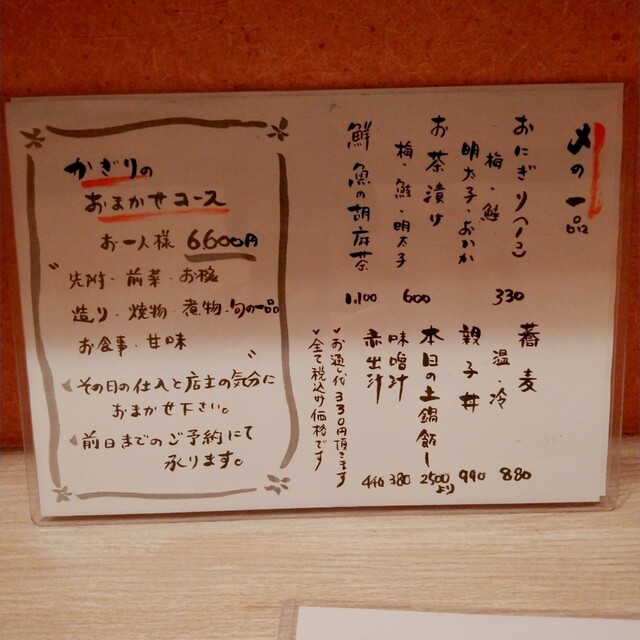 〆の一品
おにぎり(1コ)
梅・鮭
明太子・おかか
330
お茶漬け
梅・鮭・明太子
600
鮮魚の胡麻茶
1,100
蕎麦
温・冷
880
親子丼
990
本日の土鍋飯
2500より
味噌汁
380
赤出汁
440
お通し代330円頂きます
全て税込み価格です
かぎりの
おまかせコース
お一人様 6600円
"先附・前菜・お椀
造り・焼物・煮物・旬の一品
お食事・甘味"
その日の仕入と店主の気分に
おまかせ下さい。
前日までのご予約にて
承ります。